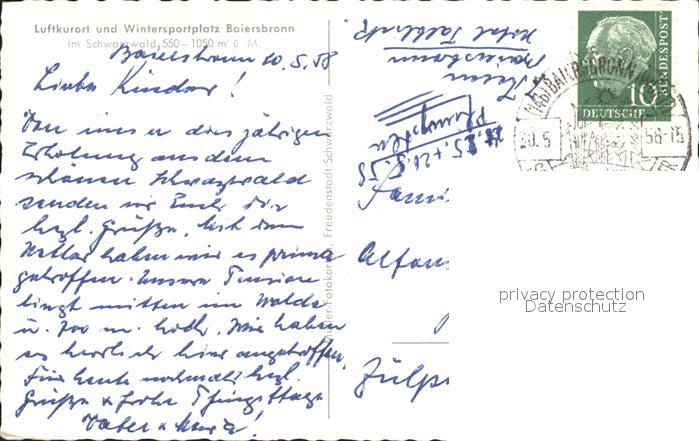 Luftkurort und Wintersportplatz Baiersbronn
im Schwarzwald, 550-1050 m ü. M.
Baiersbronn 20.5.58
Liebe Kinder!
Von unserer diesjährigen
Erholung aus dem
schönen Schwarzwald
senden wir Euch die
hzl. Grüße. Mit dem
Wetter haben wir es prima
getroffen. Unsere Pension
liegt mitten im Walde
u. 700 m. hoch. Wir haben
es herrlich hier angetroffen.
Für heute nochmals hzl.
Grüße u. frohe Pfingsttage
Vater u.
Freudenstadt Schwarzwald
Baiersbronn
Hotel
Famil
Alfons
Zülp
DEUTSCHE BUNDESPOST
10
BAIERSBRONN
20.5 58-15
privacy protection
Datenschutz